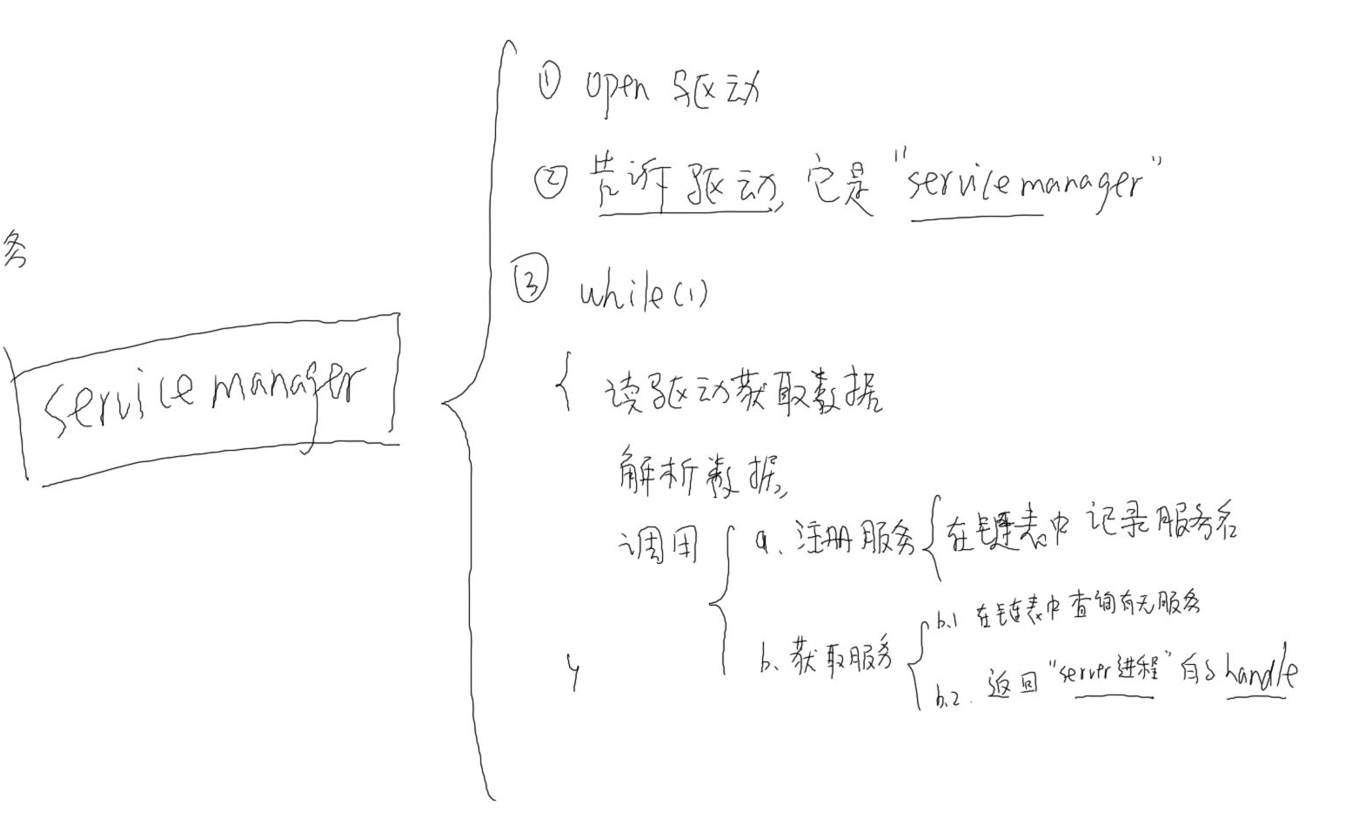 务
servicemanager
① open 驱动
② 告诉驱动, 它是 "servicemanager"
③ while(1)
{ 读驱动获取数据
解析数据,
调用 { a、注册服务 { 在链表中 记录服务名
b、获取服务 { b.1 在链表中查询有无服务
b.2. 返回 "server进程" 的 handle
}